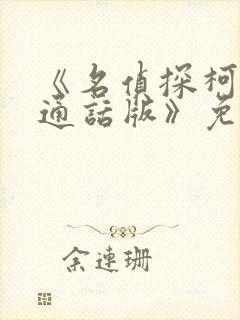 《名偵探柯
通話版》免
余連珊